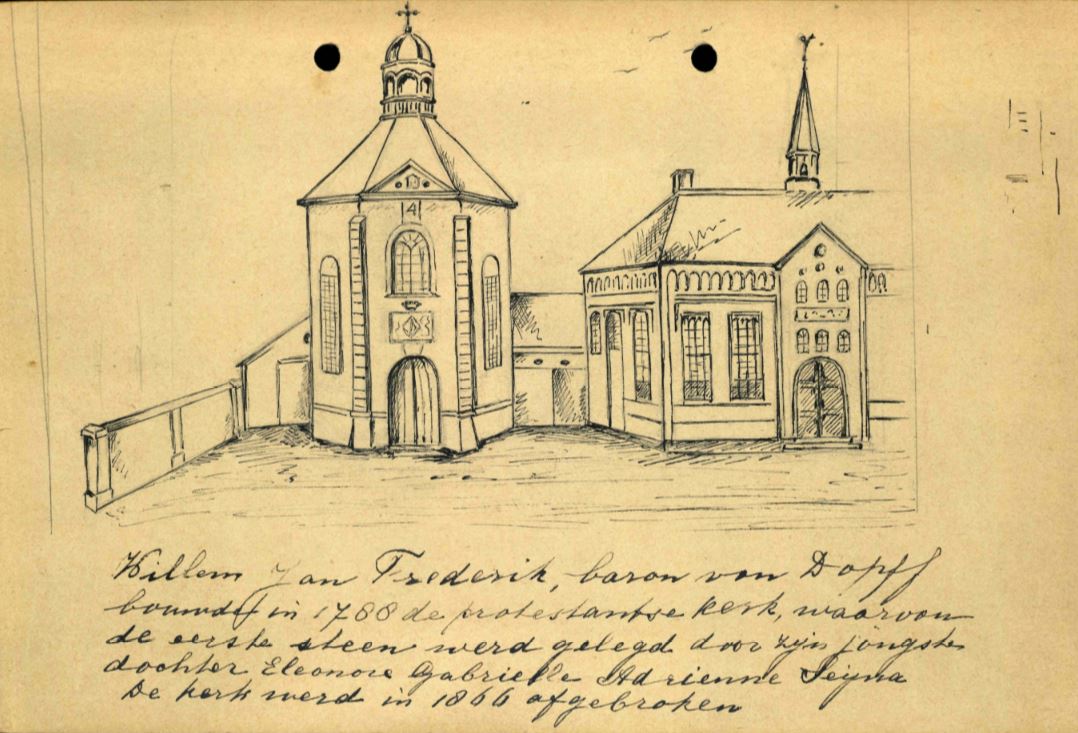 4
Willem Jan Frederik, baron von Dopff
bouwde in 1788 de protestantse kerk, waarvon
de eerste steen werd gelegd door zijn jongste
dochter Eleonore Gabrielle Adrienne
De kerk werd in 1866 afgebroken